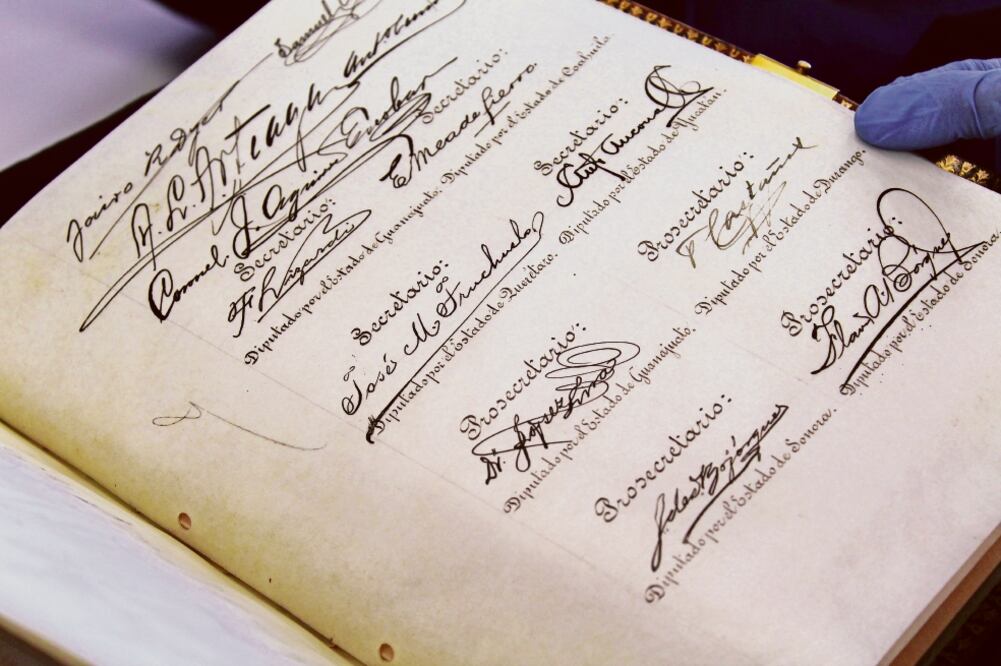 Samuel
Jairo R. Dyer
A. L. Aguirre Escobar
Coronel
Secretario:
F. Lizardi
Diputado por el Estado de Guanajuato.
Secretario:
E Meade fierro
Diputado por el Estado de Coahuila.
Secretario:
José M. Truchuelo
Diputado por el Estado de Querétaro.
Secretario:
Diputado por el Estado de Yucatán.
Prosecretario:
Dr. López Lira
Diputado por el Estado de Guanajuato.
Prosecretario:
Castaños
Diputado por el Estado de Durango.
Prosecretario:
Bojórquez
Diputado por el Estado de Sonora.
Prosecretario:
Flavio A. Bórquez
Diputado por el Estado de Sonora.